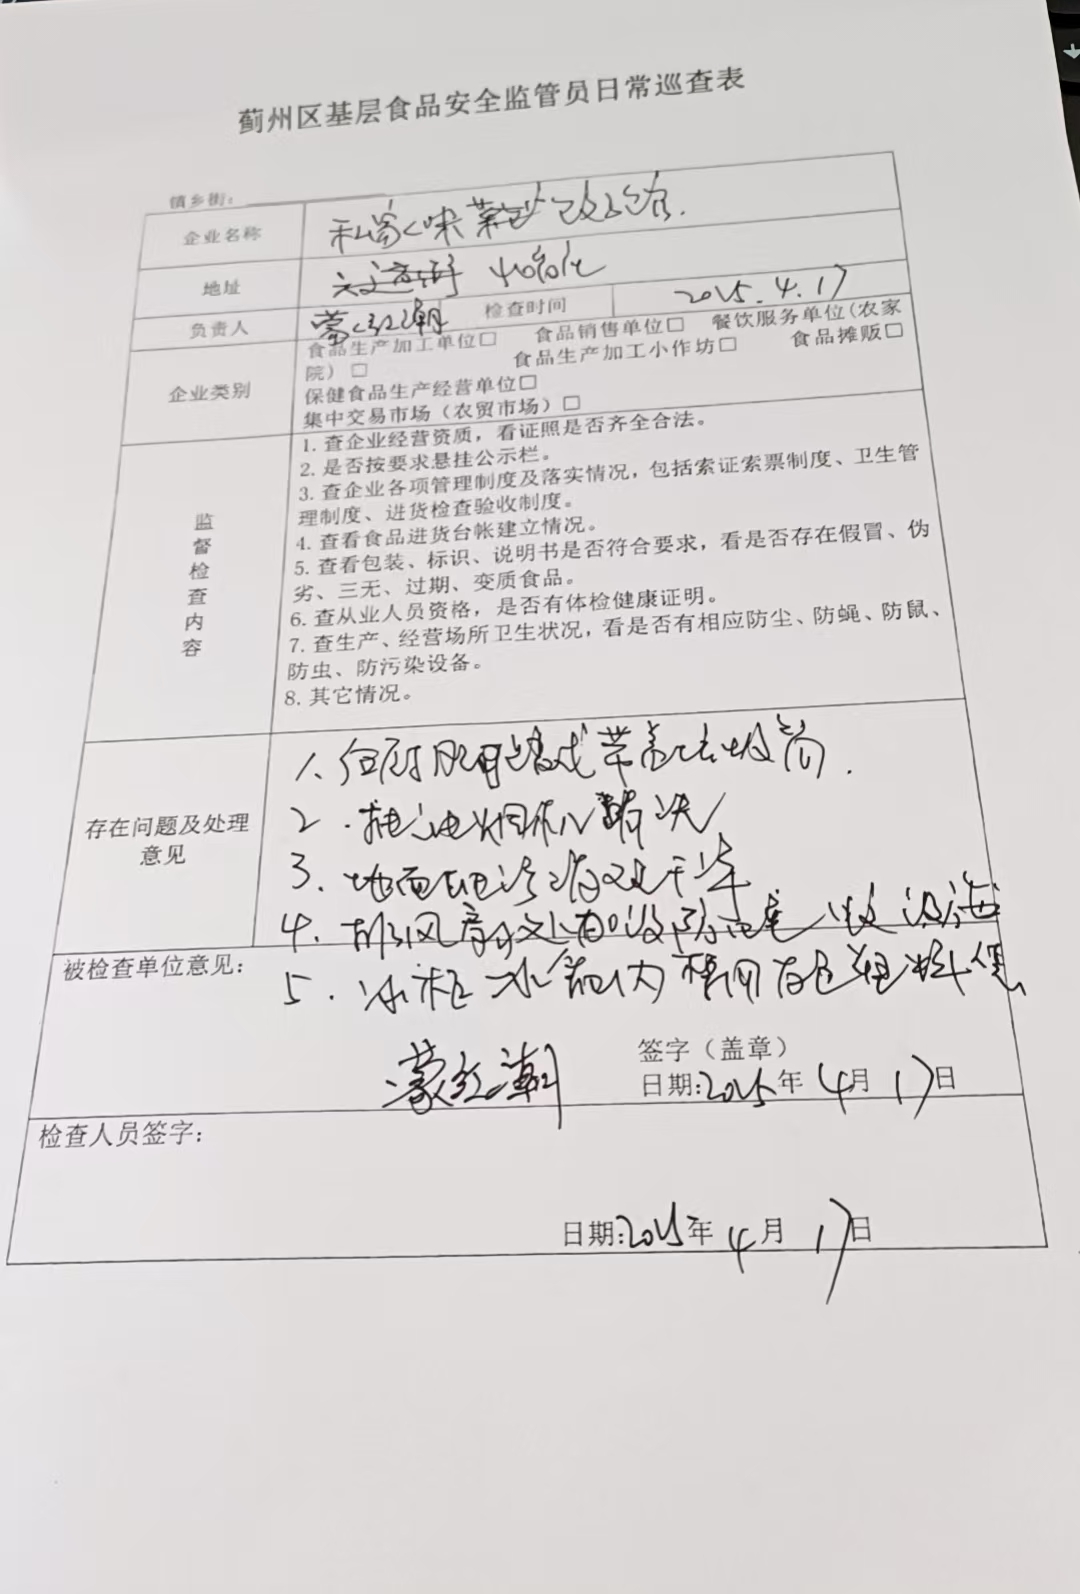 蓟州区基层食品安全监管员日常巡查表
镇乡街:
企业名称 私家味菜
地址
负责人 蒙红潮 检查时间 2025.4.17
企业类别
食品生产加工单位□ 食品销售单位□ 餐饮服务单位(农家
院)□ 食品生产加工小作坊□ 食品摊贩□
保健食品生产经营单位□
集中交易市场(农贸市场)□
监督检查内容
1. 查企业经营资质,看证照是否齐全合法。
2. 是否按要求悬挂公示栏。
3. 查企业各项管理制度及落实情况,包括索证索票制度、卫生管
理制度、进货检查验收制度。
4. 查看食品进货台帐建立情况。
5. 查看包装、标识、说明书是否符合要求,看是否存在假冒、伪
劣、三无、过期、变质食品。
6. 查从业人员资格,是否有体检健康证明。
7. 查生产、经营场所卫生状况,看是否有相应防尘、防蝇、防鼠、
防虫、防污染设备。
8. 其它情况。
存在问题及处理
意见
1. 带盖垃圾筒.
2. 油烟机清洗
3. 地面
4.
5. 冰柜冰箱内
被检查单位意见:
蒙红潮
签字(盖章)
日期:2025年4月17日
检查人员签字:
日期:2025年4月17日